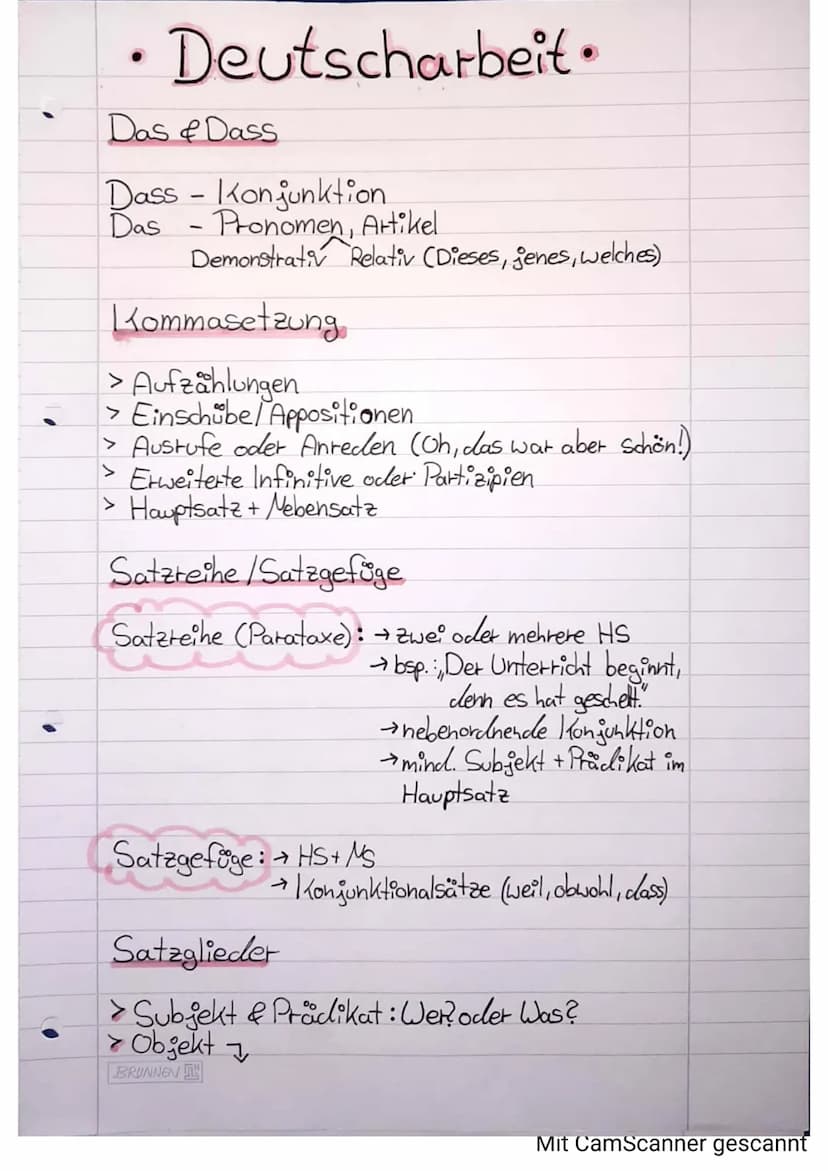 • Deutscharbeit •
Das & Dass
Dass - Konjunktion
Das - Pronomen, Artikel
Demonstrativ Relativ (Dieses, jenes, welches)
Kommasetzung
> Aufzählungen
> Einschübe/Appositionen
> Ausrufe oder Anreden (Oh, das war aber schön!)
> Erweiterte Infinitive oder Partizipien
> Hauptsatz + Nebensatz
Satzreihe/Satzgefüge
Satzreihe (Parataxe): → zwei oder mehrere HS
→ bsp.: „Der Unterricht beginnt,
denn es hat geschellt."
→ nebenordnende Konjunktion
→ mind. Subjekt + Prädikat im
Hauptsatz
Satzgefüge: → HS + NS
→ Konjunktionalsätze (weil, obwohl, dass)
Satzglieder
> Subjekt & Prädikat: Wer? oder Was?
> Objekt ↴
BRUNNEN
Mit CamScanner gescannt